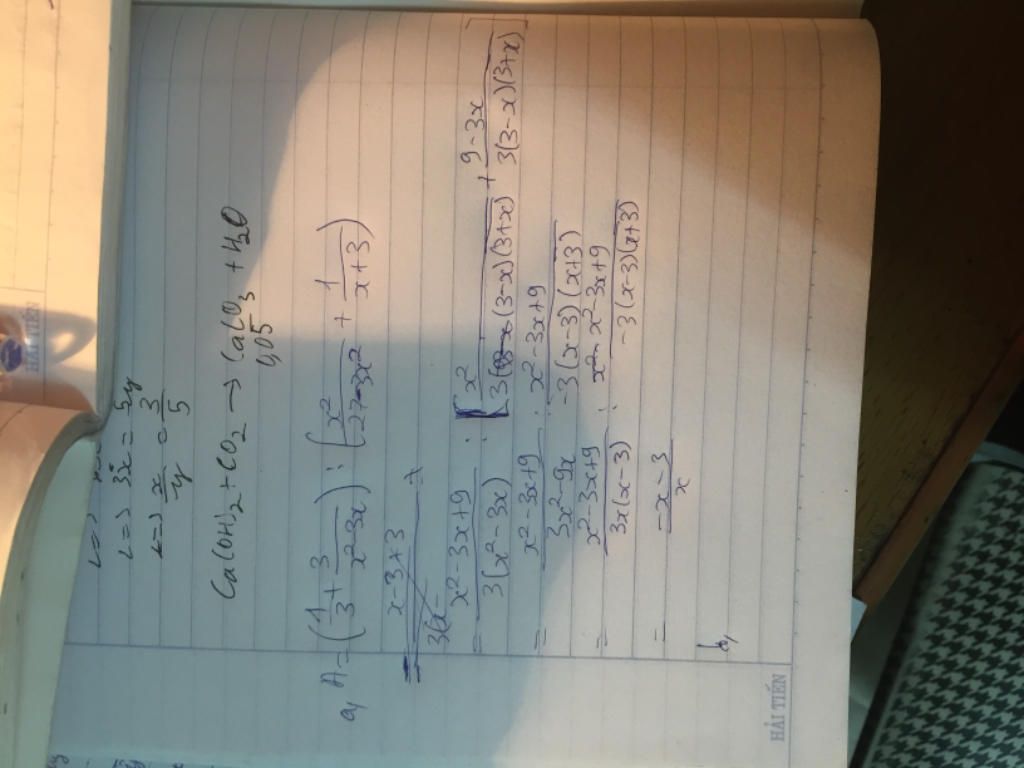 <=> 3x = 5y
<=> x/y = 3/5
Ca(OH)2 + CO2 → CaCO3 + H2O
0,05
a, A = (1/3 + 3/(x²-3x)) : (x²/(27-3x²) + 1/(x+3))
= (x²-3x+9)/(3(x²-3x)) : [x²/(3(3-x)(3+x)) + (9-3x)/(3(3-x)(3+x))]
= (x²-3x+9)/(3x²-9x) : (x²-3x+9)/(-3(x-3)(x+3))
= (x²-3x+9)/(3x(x-3)) : (x²-3x+9)/(-3(x-3)(x+3))
= (-x-3)/x
b,
HẢI TIẾN
HẢI TIẾN